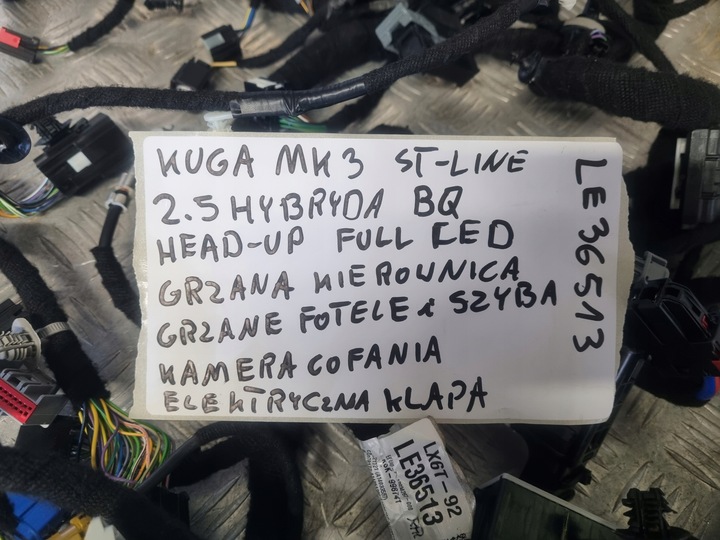 KUGA MK3 ST-LINE
2.5 HYBRYDA BQ
HEAD-UP FULL LED
GRZANA KIEROWNICA
GRZANE FOTELE i SZYBA
KAMERA COFANIA
ELEKTRYCZNA KLAPA
LE36513
LX6T-92
LE36513